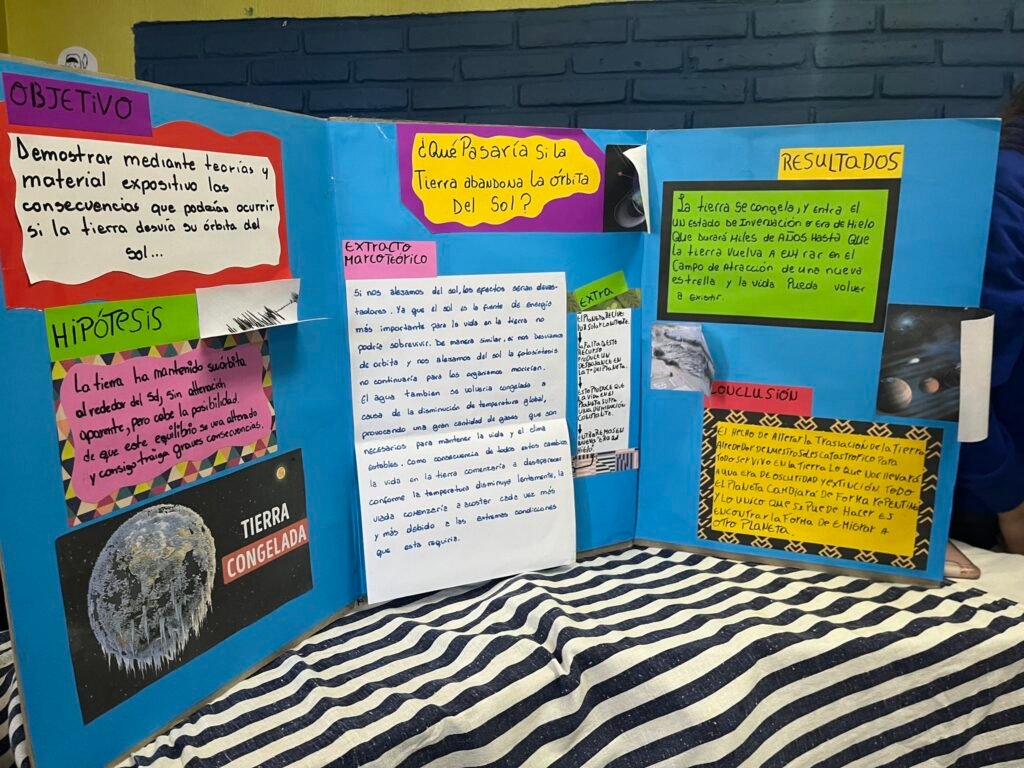 OBJETIVO
Demostrar mediante teorías y
material expositivo las
consecuencias que podrías ocurrir
si la tierra desvía su órbita del
sol...
HIPÓTESIS
La tierra ha mantenido su órbita
al rededor del Sol, sin alteración
aparente, pero cabe la posibilidad
de que este equilibrio se vea alterado
y consigo traiga graves consecuencias.
TIERRA
CONGELADA
¿Qué Pasaría Si La
Tierra abandona La órbita
Del Sol?
EXTRACTO
MARCO TEÓRICO
Si nos alejamos del sol, los efectos serian devas-
tadores. Ya que el sol es la fuente de energía
más importante para la vida en la tierra no
podría sobrevivir. De manera similar, si nos desviamos
de orbita y nos alejamos del sol la fotosíntesis
no continuaría para los organismos morirían.
El agua tambien se volveria congelada a
causa de la disminución de temperatura global,
provocando una gran cantidad de gases que son
necesarios para mantener la vida y el clima
estables. Como consecuencia de todos estos cambios,
la vida en la tierra comenzaría a desaparecer
conforme la temperatura disminuye lentamente, la
viada comenzaría a acoster cada vez más
y más debido a las extremas condiciones
que esta requiria.
EXTRA
El Planeta recibe
luz solar constante.
la falta de este
recurso
produce un
desbalance en
la T° del Planeta.
Esto produce que
la vida en el
Planeta sufra
una disminución
constante.
RESULTADOS
La tierra se congela, y entra el
un estado de Invernación o era de Hielo
Que durará Miles de AÑOS Hasta Que
la tierra Vuelva A entrar en el
Campo de Atracción de una nueva
estrella y la vida Pueda volver
a Existir.
CONCLUSIÓN
El Hecho de Alterar la Traslación de la Tierra
Alrededor de nuestro Sol es Catastrófico Para
Todo Ser vivo en la Tierra Lo que Nos llevará
A una era de oscuridad y extinción todo
el Planeta Cambiará de forma repentina
y lo unico que se puede Hacer es
encontrar la forma de emigrar a
otro Planeta.